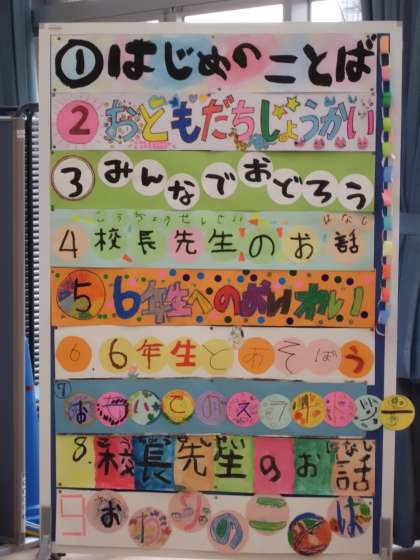 ① はじめのことば
② おともだちしょうかい
③ みんなでおどろう
こうちょうせんせい はなし
4 校長先生のお話
5 6年生へのおいわい
6 6年生とあそぼう
7 おもいでのスライドショー
8. 校長先生のお話
9 おわりのことば